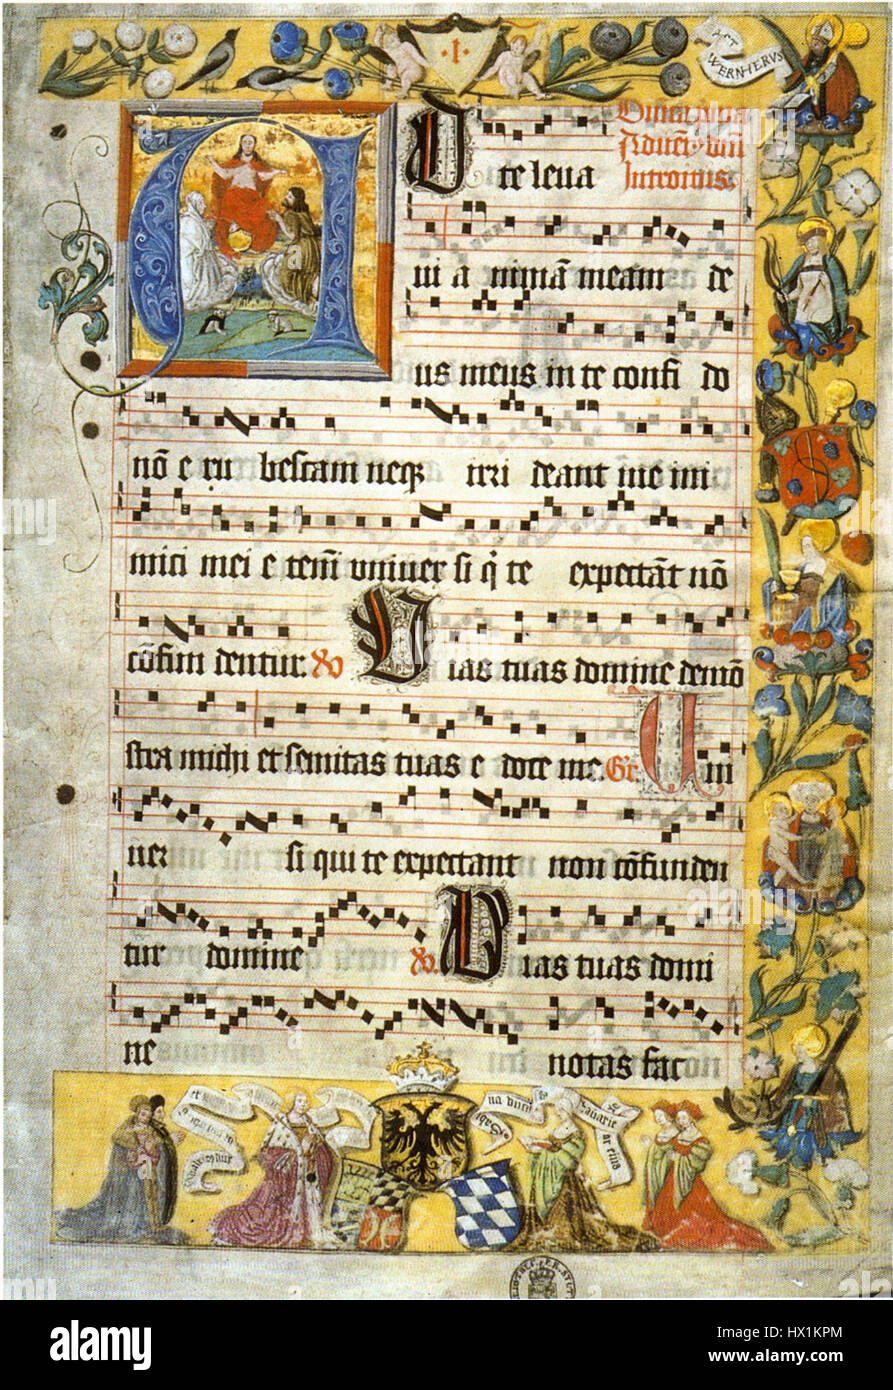 ·I·
WERNHERVS
Introitus.
A D te leva
ui a nimā meam de
us meus in te confi do
nō e ru bescam neqꝫ irri deant me ini
mici mei e tem̄ vniuer si q̄ te expectāt nō
cōfun dentur. ℣ Uias tuas domine demō
stra michi et semitas tuas e doce me. Gr. Uni
uer si qui te expectant non cōfunden
tur domine ℣. Uias tuas domi
ne notas fac
alamy
Image ID: HX1KPM
www.alamy.com